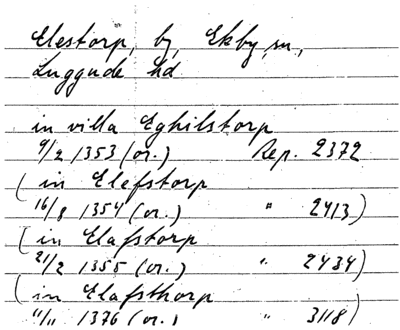 Elestorp, by, Ekby sn,
Luggude hd
in villa Eghilstorp
9/2 1353 (or.) Rep. 2372
(in Elefstorp
16/8 1354 (or.) " 2413)
(in Elafstorp
21/2 1355 (or.) " 2434)
(in Elafsthorp
11/11 1376 (or.) " 3118)